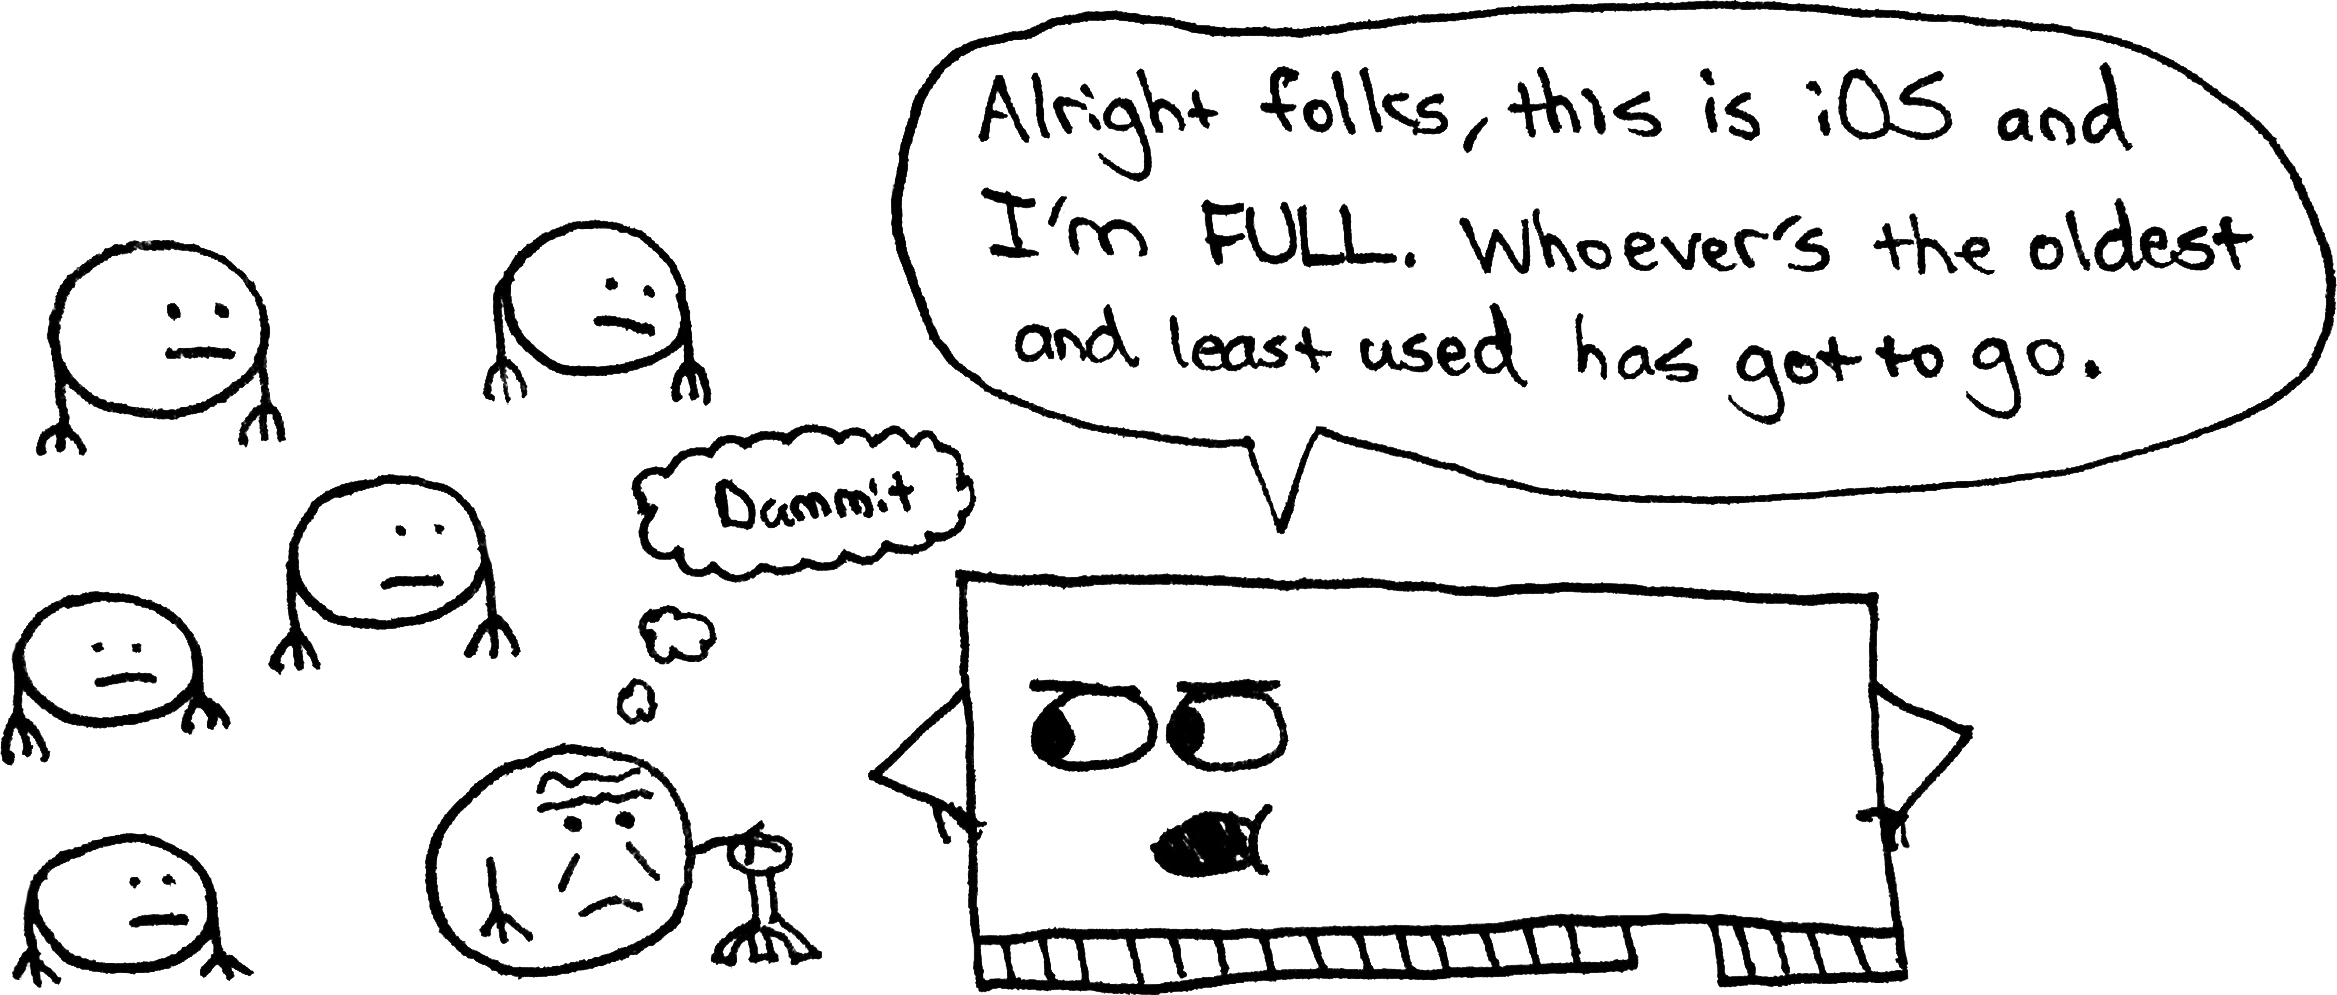 Alright folks, this is iOS and
I'm FULL. Whoever's the oldest
and least used has got to go.
Dammit